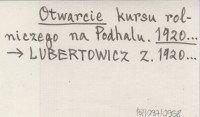 Otwarcie kursu rol-
niczego na Podhalu. 1920...
→ LUBERTOWICZ Z. 1920...